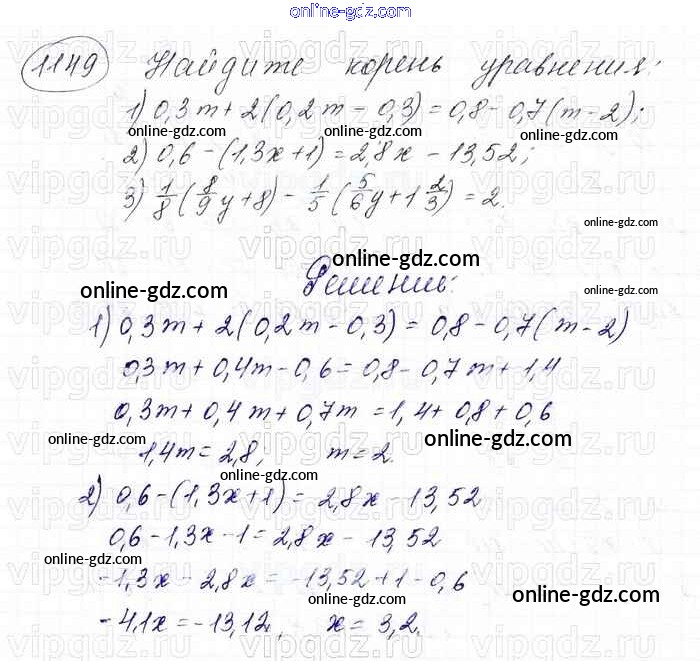 online-gdz.com
1149 Найдите корень уравнения:
1) 0,3m + 2(0,2m - 0,3) = 0,8 - 0,7(m - 2);
online-gdz.com online-gdz.com online-gdz.com
2) 0,6 - (1,3x + 1) = 2,8x - 13,52;
3) 1/8 (8/9 y + 8) - 1/5 (5/6 y + 1 2/3) = 2.
online-gdz.com
online-gdz.com
Решение:
online-gdz.com online-gdz.com
1) 0,3m + 2(0,2m - 0,3) = 0,8 - 0,7(m - 2)
0,3m + 0,4m - 0,6 = 0,8 - 0,7m + 1,4
0,3m + 0,4m + 0,7m = 1,4 + 0,8 + 0,6
online-gdz.com online-gdz.com
1,4m = 2,8, m = 2.
online-gdz.com
2) 0,6 - (1,3x + 1) = 2,8x - 13,52
0,6 - 1,3x - 1 = 2,8x - 13,52
online-gdz.com
-1,3x - 2,8x = -13,52 + 1 - 0,6
online-gdz.com online-gdz.com
-4,1x = -13,12, x = 3,2.